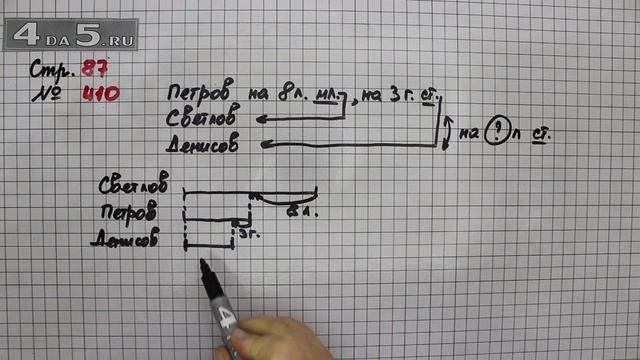 4 DA 5.RU
Стр. 87
№ 410
Петров на 8л. мл., на 3г. ст.
Светлов
Денисов
на ? л ст.
Светлов
Петров 8л.
Денисов 3г.
4